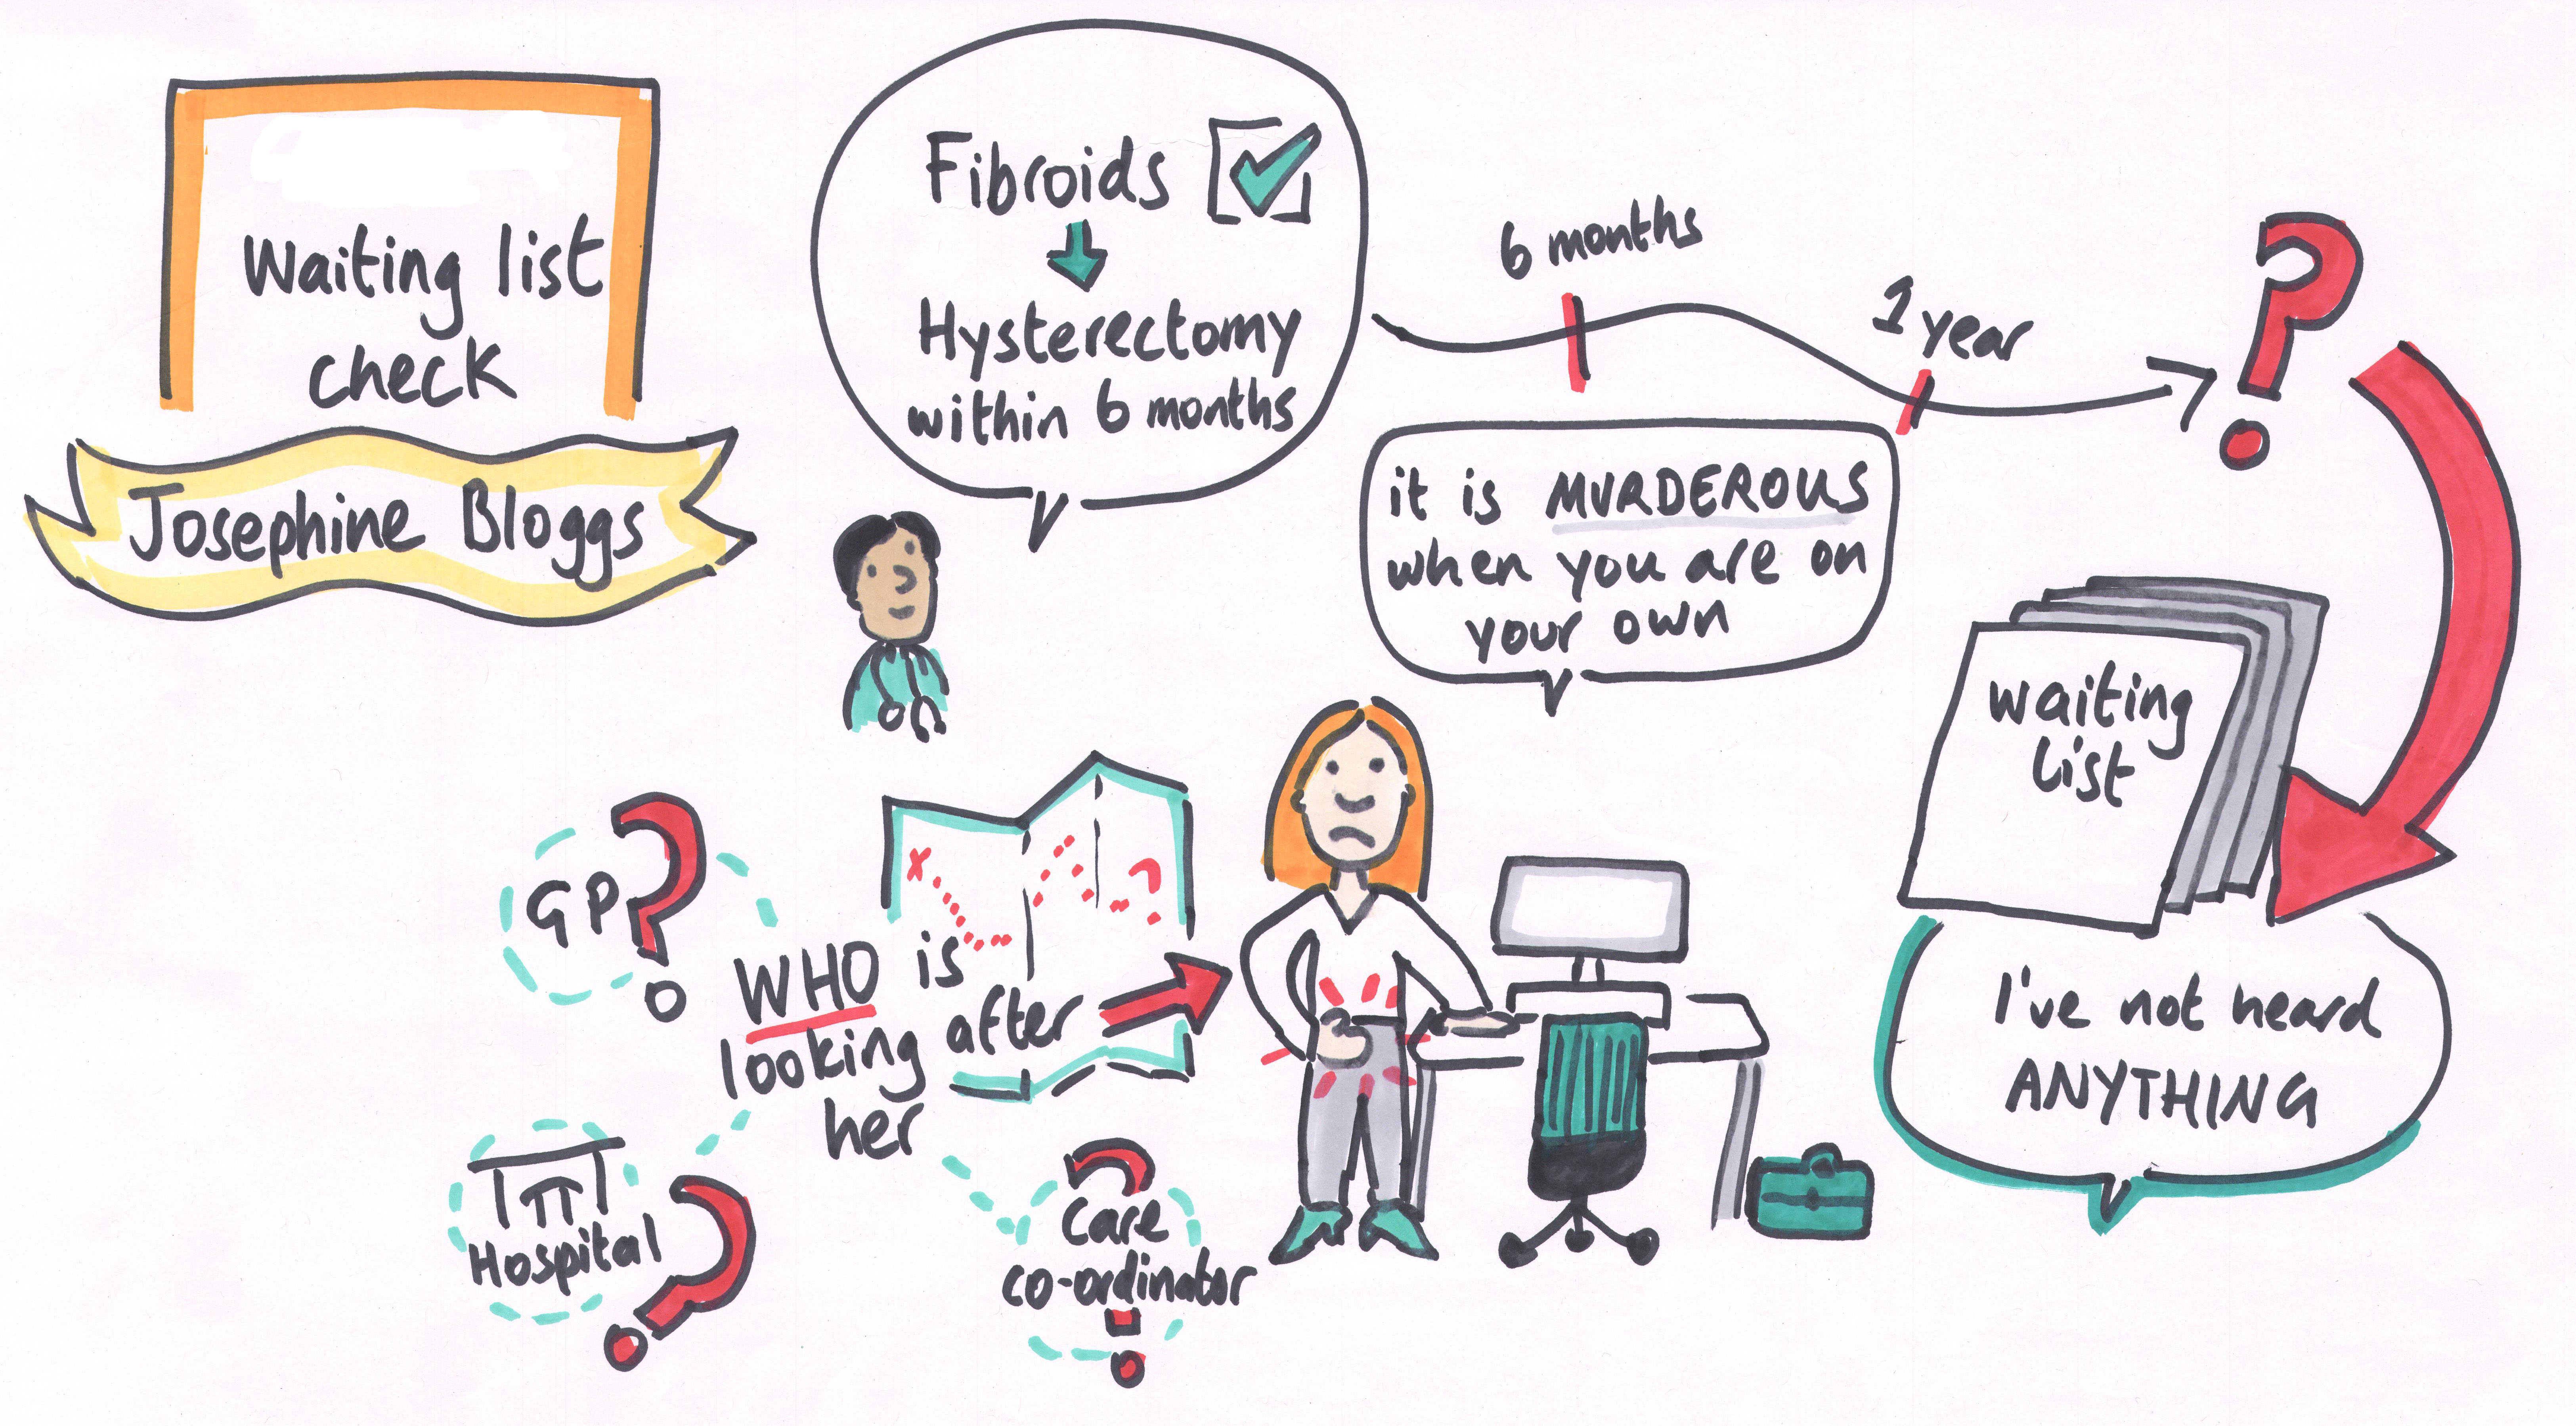 Waiting list
check
Josephine Bloggs
Fibroids
Hysterectomy
within 6 months
6 months
1 year
?
it is MURDEROUS
when you are on
your own
waiting
list
I've not heard
ANYTHING
GP?
WHO is
looking after
her
?
Hospital?
Care
co-ordinator
?